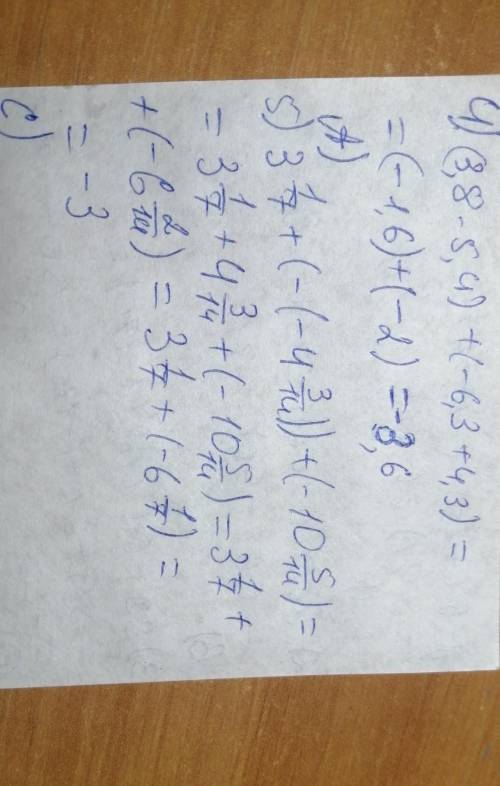 4) (3,8 - 5,4) + (-6,3 + 4,3) =
= (-1,6) + (-2) = -3,6
A)
5) 3 1/7 + (-(-4 3/14)) + (-10 5/14) =
= 3 1/7 + 4 3/14 + (-10 5/14) = 3 1/7 +
+ (-6 2/14) = 3 1/7 + (-6 1/7) =
= -3
C)